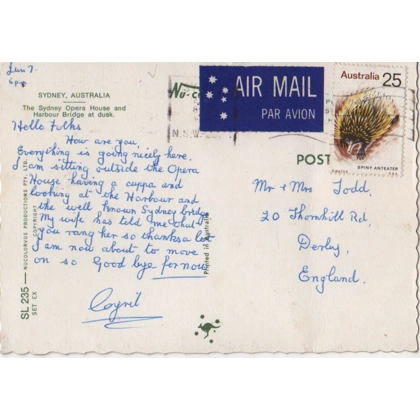 Jun 7.
6pm
SYDNEY, AUSTRALIA
The Sydney Opera House and
Harbour Bridge at dusk.
Hello Folks
How are you.
Everything is going nicely here.
I am sitting outside the Opera
House having a cuppa and
looking at the Harbour and
the well known Sydney bridge
My wife has told me that
you rang her so thanks a lot
I am now about to move
on so Good bye for now
Cyril
SL 235 — NUCOLORVUE PRODUCTIONS PTY LTD
SET EX COPYRIGHT
Printed in Australia
Nu-co
N.S.W.
AIR MAIL
PAR AVION
Australia 25
SPINY ANTEATER
POST
Mr + Mrs Todd
20 Thornhill Rd,
Derby,
England.